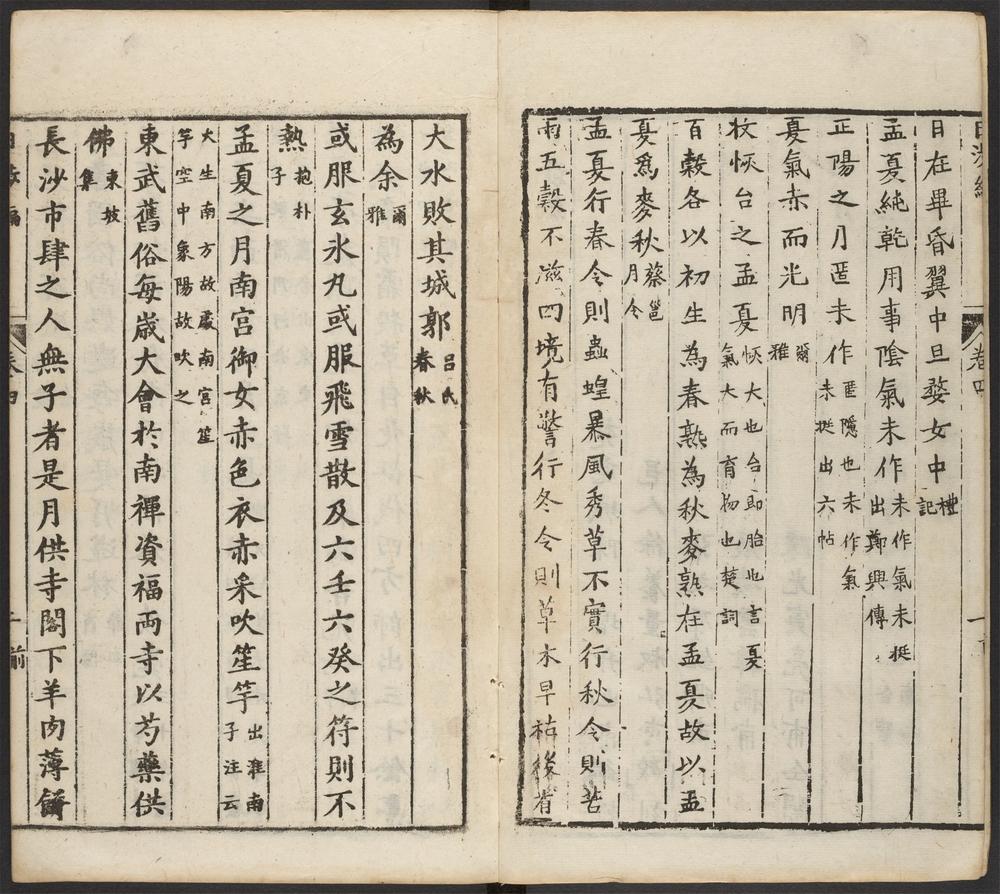 日在畢昏翼中旦婺女中禮記
孟夏純乾用事陰氣未作未作氣未挺出鄭興傳
正陽之月慝未作慝隱也未作氣未挺出六帖
夏氣赤而光明爾雅
收恢台之孟夏恢大也台即胎也言夏氣大而育物也楚詞
百穀各以初生為春熟為秋麥熟在孟夏故以孟
夏為麥秋蔡邕月令
孟夏行春令則蟲蝗暴風秀草不實行秋令則苦
雨五穀不滋四境有警行冬令則草木早枯後有
大水敗其城郭呂氏春秋
為余爾雅
或服玄氷丸或服飛雪散及六壬六癸之符則不
熱抱朴子
孟夏之月南宮御女赤色衣赤采吹笙竽出淮南子注云
火生南方故處南宮笙竽空中象陽故吹之
東武舊俗每歲大會於南禪資福兩寺以芍藥供
佛東坡集
長沙市肆之人無子者是月供寺閣下羊肉薄餅
卷四
前